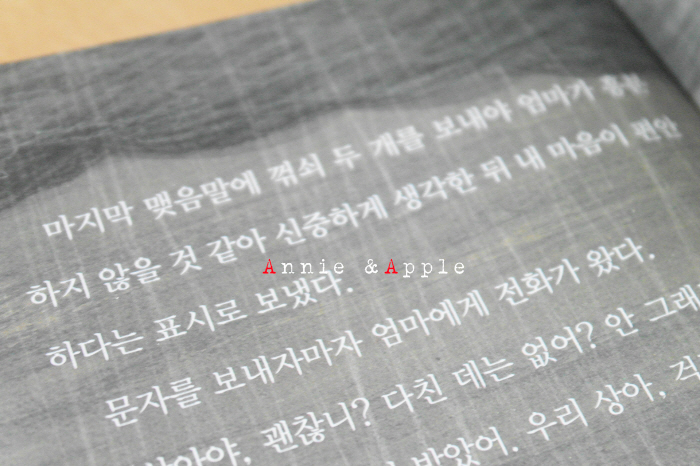 마지막 맺음말에 꺾쇠 두 개를 보내야 엄마가 흥분
하지 않을 것 같아 신중하게 생각한 뒤 내 마음이 편안
Annie & Apple
하다는 표시로 보냈다.
문자를 보내자마자 엄마에게 전화가 왔다.
괜찮니? 다친 데는 없어? 안 그래
받았어. 우리 상아, 걱